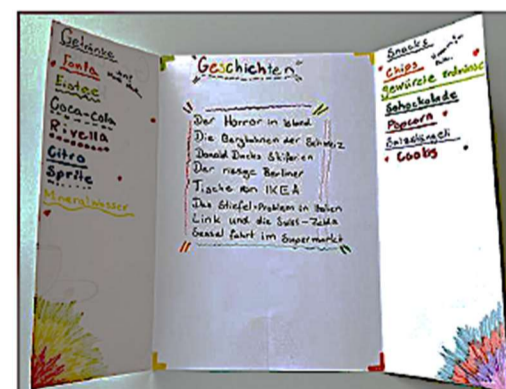 Getränke
Fanta
Eistee
Coca-cola
Rivella
Citro
Sprite
Mineralwasser
Geschichten
Der Horror in
Die Bergbahnen der Schweiz
Donald Ducks Skiferien
Der riesige Berliner
Tische von IKEA
Das Stiefel-Problem in Italien
Link und die Swiss-Zelda
Sessel fährt im Supermarkt
Snacks
Chips
gewürzte Erdnüsse
Schockolade
Popcorn